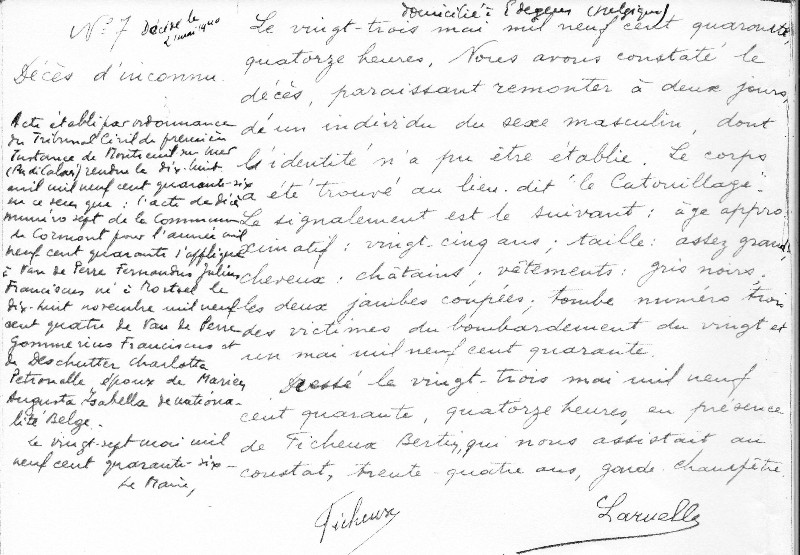 N° 7 Décédé le
21 mai 1940
Décès d'inconnu.
Acte établi par ordonnance
du Tribunal Civil de première
Instance de Montreuil sur Mer
(Pas de Calais) rendu le dix-huit
avril mil neuf cent quarante-six
en ce sens que : l'acte de décès
numéro sept de la Commune
de Cormont pour l'année mil
neuf cent quarante s'applique
à Van de Perre Fernandus Julius
Franciscus né à Mortsel le
dix-huit novembre mil neuf
cent quatre de Van de Perre
Gommerius Franciscus et
de Deschutter Charlotta
Petronalle, époux de
Augusta Isabella de nationa-
lité Belge.
Le vingt-sept mai mil
neuf cent quarante-six -
Le Maire,
domicilié à Edegem (Belgique)
Le vingt-trois mai mil neuf cent quarante,
quatorze heures, Nous avons constaté le
décès, paraissant remonter à deux jours,
d'un individu du sexe masculin, dont
l'identité n'a pu être établie. Le corps
a été trouvé au lieu-dit "le Catouillage".
Le signalement est le suivant : âge appro-
ximatif : vingt-cinq ans ; taille : assez grand,
cheveux : châtains ; vêtements : gris noirs.
les deux jambes coupées ; tombe numéro trois
des victimes du bombardement du vingt et
un mai mil neuf cent quarante.
Dressé le vingt-trois mai mil neuf
cent quarante, quatorze heures, en présence
de Ficheux Bertin, qui nous assistait au
constat, trente-quatre ans, garde-champêtre.
Ficheux
Laruelle